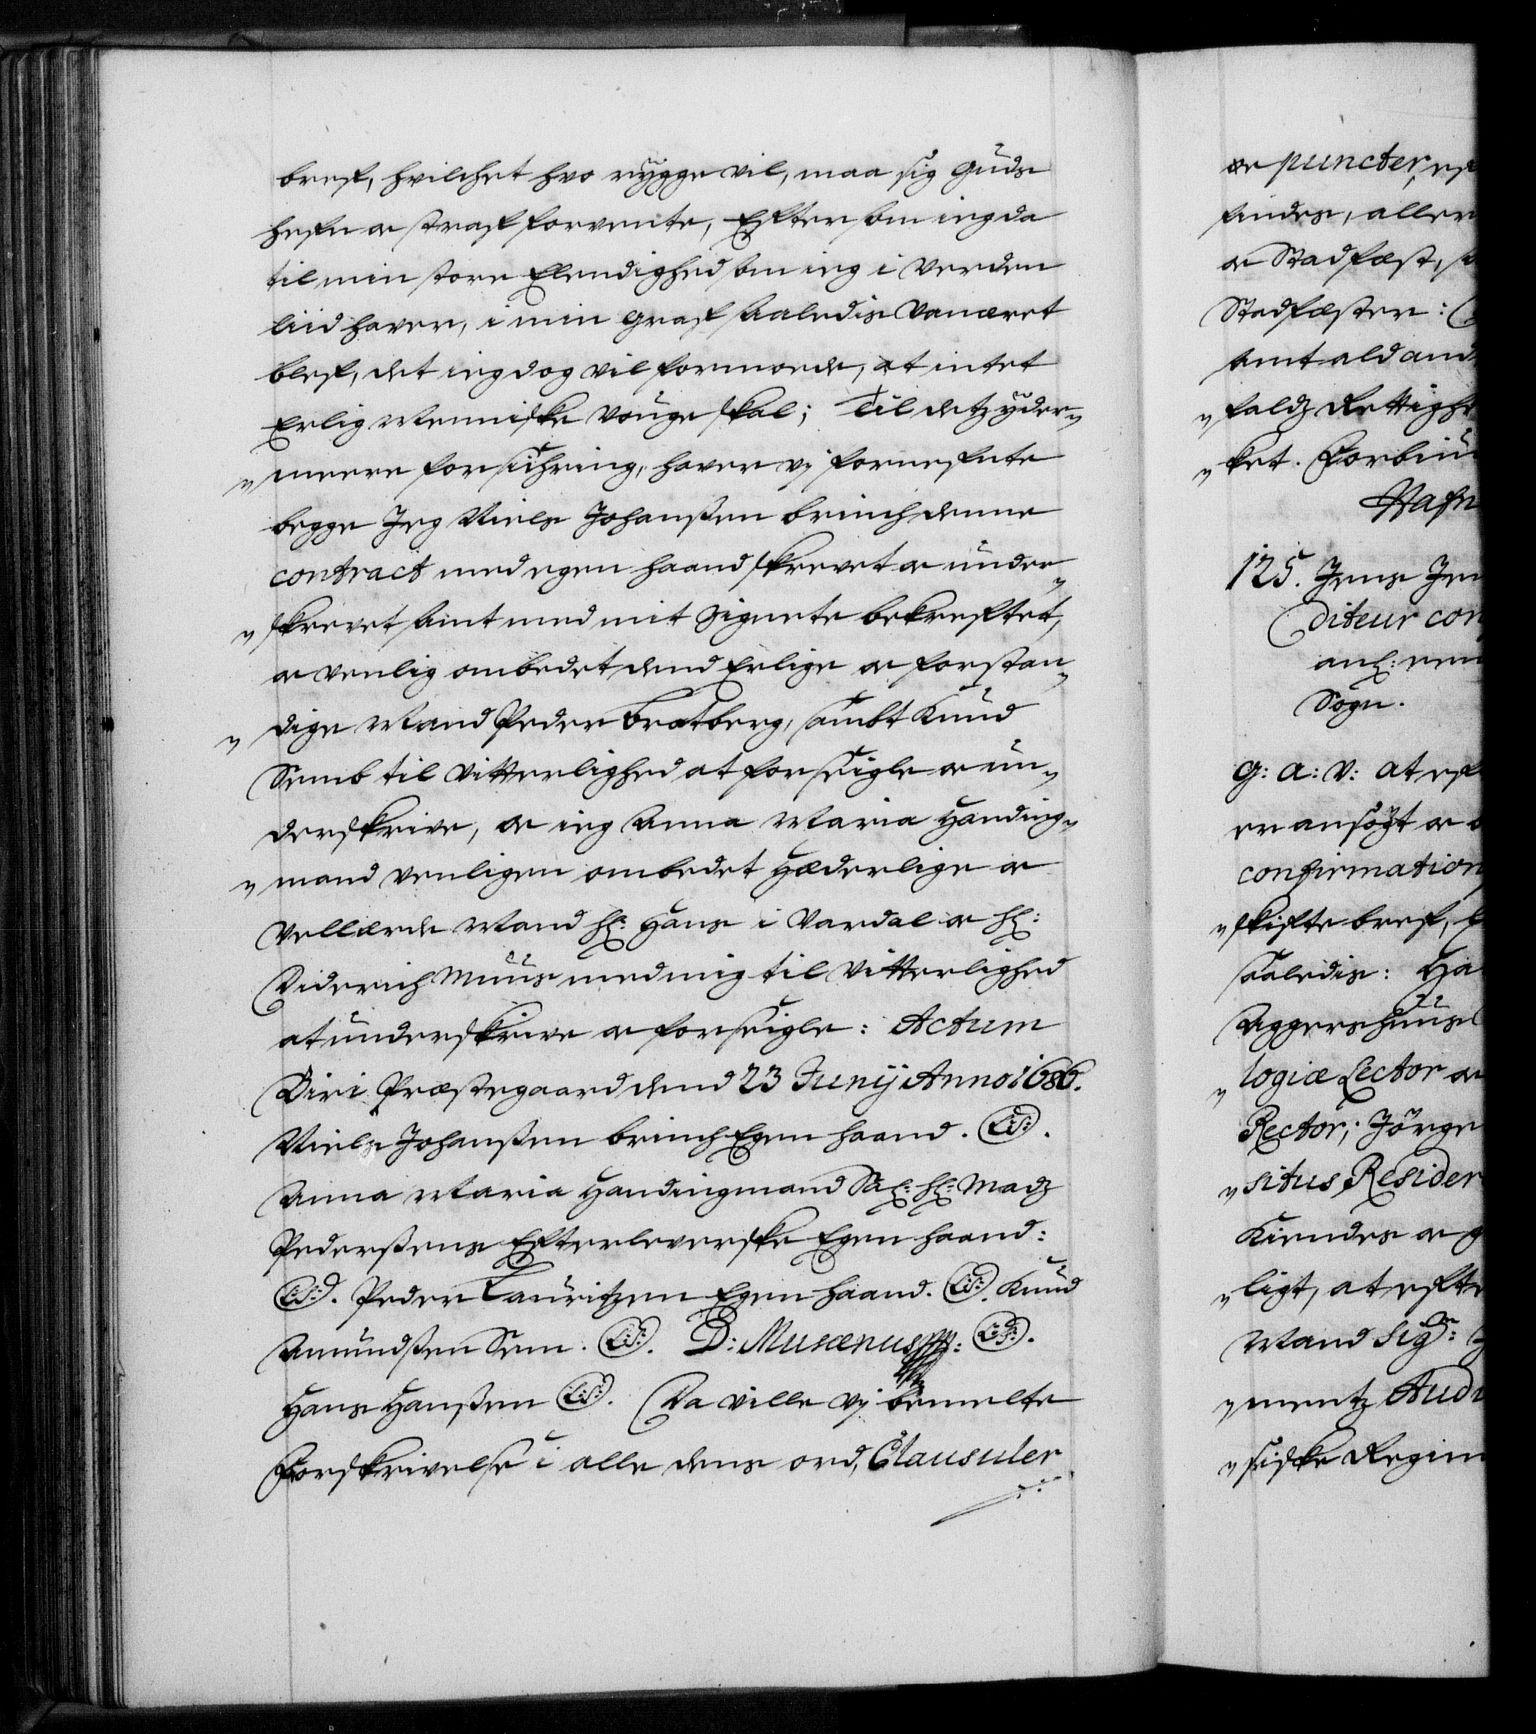 bref, hvilchet hvo rygge vil, maa sig Guds
hefn oc straf forvente, Efter som ieg da
til min store Elendighed som ieg i Verden
liid haver, i min graf saaledis Vanæret
blef, det ieg dog vil formode, at intet
Erlig Menniske vouge skal; Til detz yder-
"meere forsichring, haver vj fornefnte
begge Jeg Niels Johanßen brinch denne
contract med egen haand skrevet oc under-
"skrevet samt med mit Zignete bekreftet,
oc venlig ombedet dend Erlige oc forstan-
"dige Mand Peder Bratberg, sambt Knud
Semb til Vitterlighed at forseigle oc un-
derskrive, oc ieg Anna Maria Handing-
"mand venligen ombedet Hæderlige oc
Vellærde Mand Hl: Hans i Vardal oc Hl:
Diderich Muus med mig til Vitterlighed
at underskrive oc forseigle: Actum
Diri Præstegaard dend 23 Junij Anno 1686.
Niels Johanßen brinch Egen haand. (L.S.).
Anna Maria Handingmand Sal: Hl: Madz
Pederßens Efterleverske Egen haand:
(L.S.). Peder Lauritzen Egen haand. (L.S.). Knud
Amundßen Sem. (L.S.). D: Musænus: (L.S.).
Hans Hanßen (L.S.). Da ville vj bemelte
Forskrivelse i alle dens ord, Clausuler
oc puncter, ef
findes, aller
oc Stadfæst, s
Stadfæster:
samt ald and
"faldz Rettighe
"ket. Forbiu
Hafn
125. Jens Jen
diteur con
anl: een
Sogn.
G: A: V: At ef
er ansøgt oc b
confirmation
"skifte bref,
saaledis: Ha
Aggershuus
"logiæ Lector oc
Rector; Jörge
"situs, Resider
Kiendes oc g
"ligt, at efte
Mand Sigr:
"mentz Audi
"siske Regim